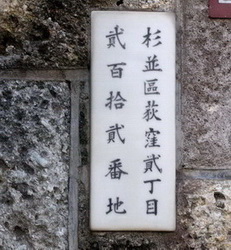 杉並區荻窪貳丁目
貳百拾貳番地